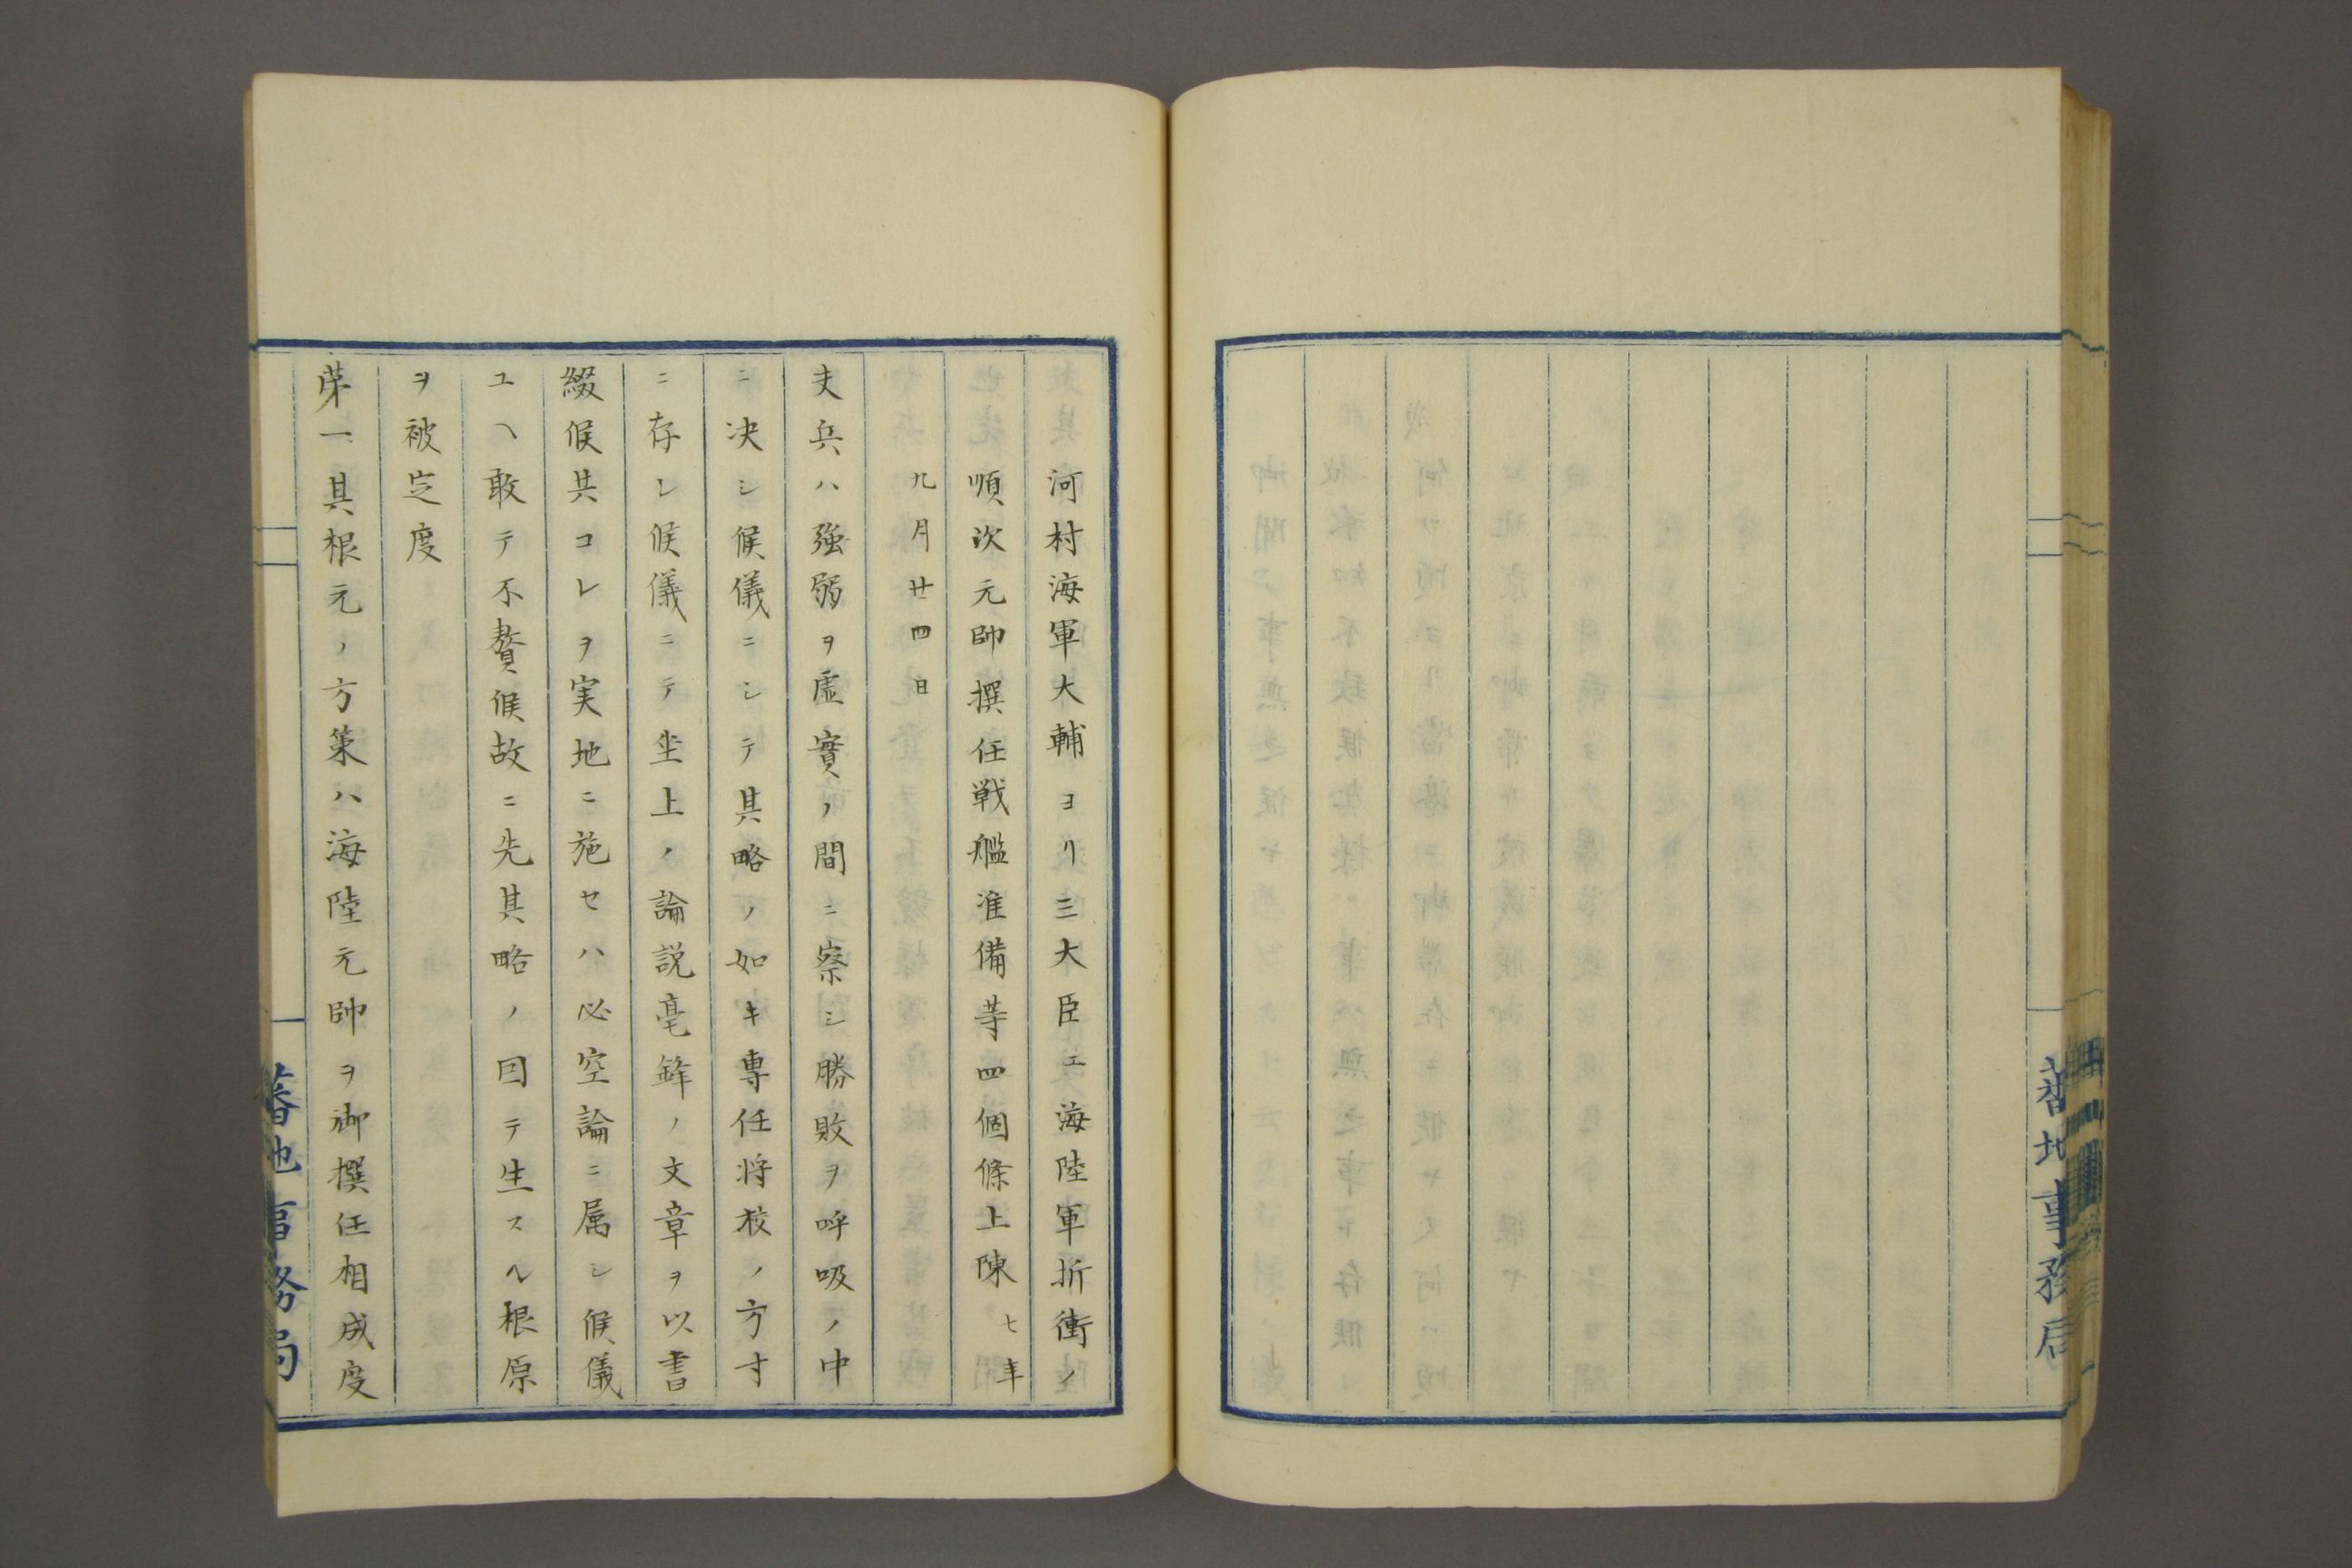 河村海軍大輔ヨリ三大臣エ海陸軍折衝ノ
順次元帥撰任戦艦准備等四個條上陳 七年
九月廿四日
夫兵ハ強弱ヲ虚實ノ間ニ察シ勝敗ヲ呼吸ノ中
ニ决シ候儀ニシテ其略ノ如キ専任将校ノ方寸
ニ存シ候儀ニテ坐上ノ論説毫鋒ノ文章ヲ以書
綴候共コレヲ実地ニ施セハ必空論ニ属シ候儀
ユヘ敢テ不贅候故ニ先其略ノ因テ生スル根原
ヲ被定度
苐一其根元ノ方策ハ海陸元帥ヲ御撰任相成度
蕃地事務局
蕃地事務局